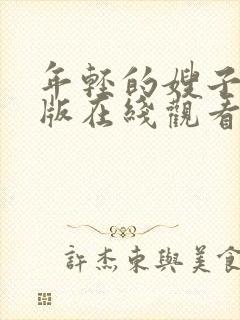 年轻的嫂子
版在綫觀看
許杰東與美食